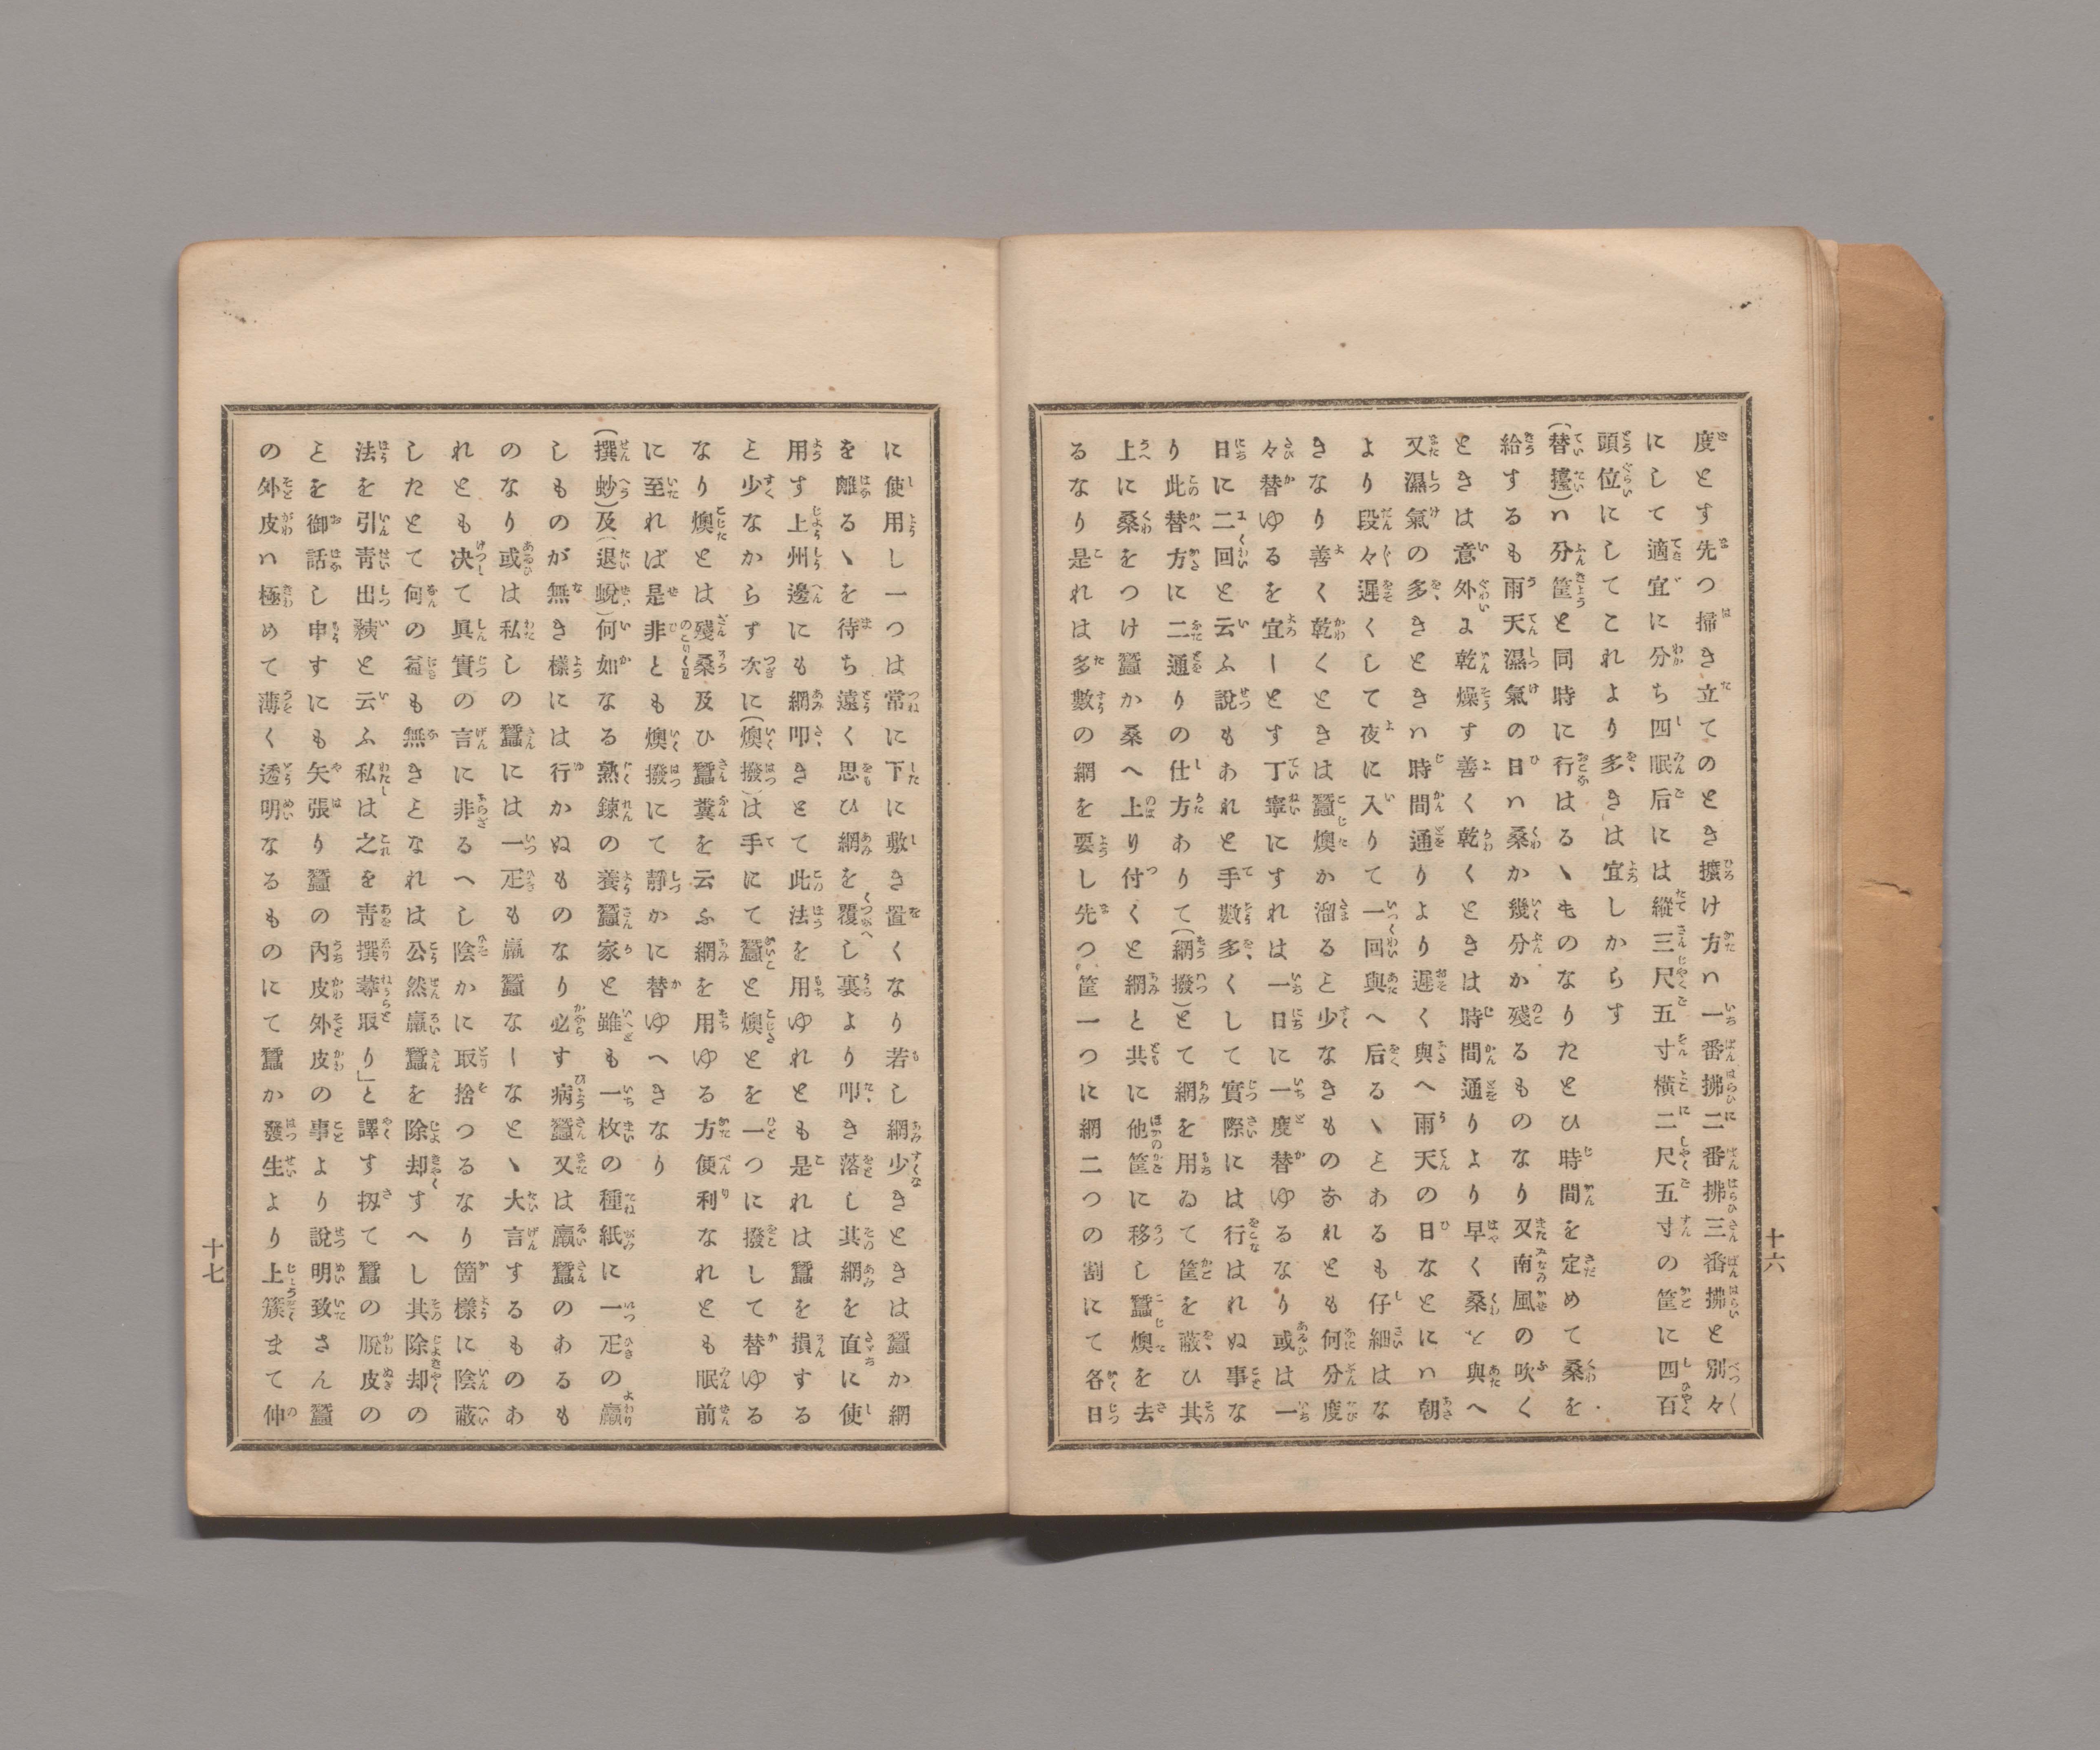 度とす先つ掃き立てのとき擴け方ハ一番拂二番拂三番拂と別々
にして適宜に分ち四眠后には縱三尺五寸横二尺五寸の筐に四百
頭位にしてこれより多きは宜しからす
(替擡)ハ分筐と同時に行はるヽものなりたとひ時間を定めて桑を
給するも雨天濕氣の日ハ桑か幾分か殘るものなり又南風の吹く
ときは意外よ乾燥す善く乾くときは時間通りより早く桑と與へ
又濕氣の多きときハ時間通りより遲く與へ雨天の日なとにハ朝
より段々遲くして夜に入りて一回與へ后るヽとあるも仔細はな
きなり善く乾くときは蠶燠か溜ると少なきものなれとも何分度
々替ゆるを宜ーとす丁寧にすれは一日に一度替ゆるなり或は一
日に二回と云ふ說もあれと手數多くして實際には行はれぬ事な
り此替方に二通りの仕方ありて(網撥)とて網を用ゐて筐を蔽ひ其
上に桑をつけ蠶か桑へ上り付くと網と共に他筐に移し蠶燠を去
るなり是れは多數の網を要し先つ筐一つに網二つの割にて各日
十六
に使用し一つは常に下に敷き置くなり若し網少きときは蠶か網
を離るヽを待ち遠く思ひ網を覆し裏より叩き落し其網を直に使
用す上州邊にも網叩きとて此法を用ゆれと是れは蠶を損する
と少なからず次に(燠撥)は手にて蠶と燠とを一つに撥して替ゆる
なり燠とは殘桑及ひ蠶糞を云ふ網を用ゆる方便利なれとも眠前
に至れば是非とも燠撥にて靜かに替ゆへきなり
(撰蚴)及(退蛻)何如なる熟鍊の養蠶家と雖も一枚の種紙に一疋の羸
しものが無き樣には行かぬものなり必す病蠶又は羸蠶のあるも
のなり或は私しの蠶には一疋も羸蠶なーなとヽ大言するものあ
れとも决て眞實の言に非るへし陰かに取捨つるなり箇樣に陰蔽
したとて何の益も無きとなれは公然羸蠶を除却すへし其除却の
法を引靑出䋺と云ふ私は之を靑撰蓐取り」と譯す扨て蠶の脫皮の
とを御話し申すにも矢張り蠶の內皮外皮の事より說明致さん蠶
の外皮ハ極めて薄く透明なるものにて蠶か發生より上簇まて仲
十七